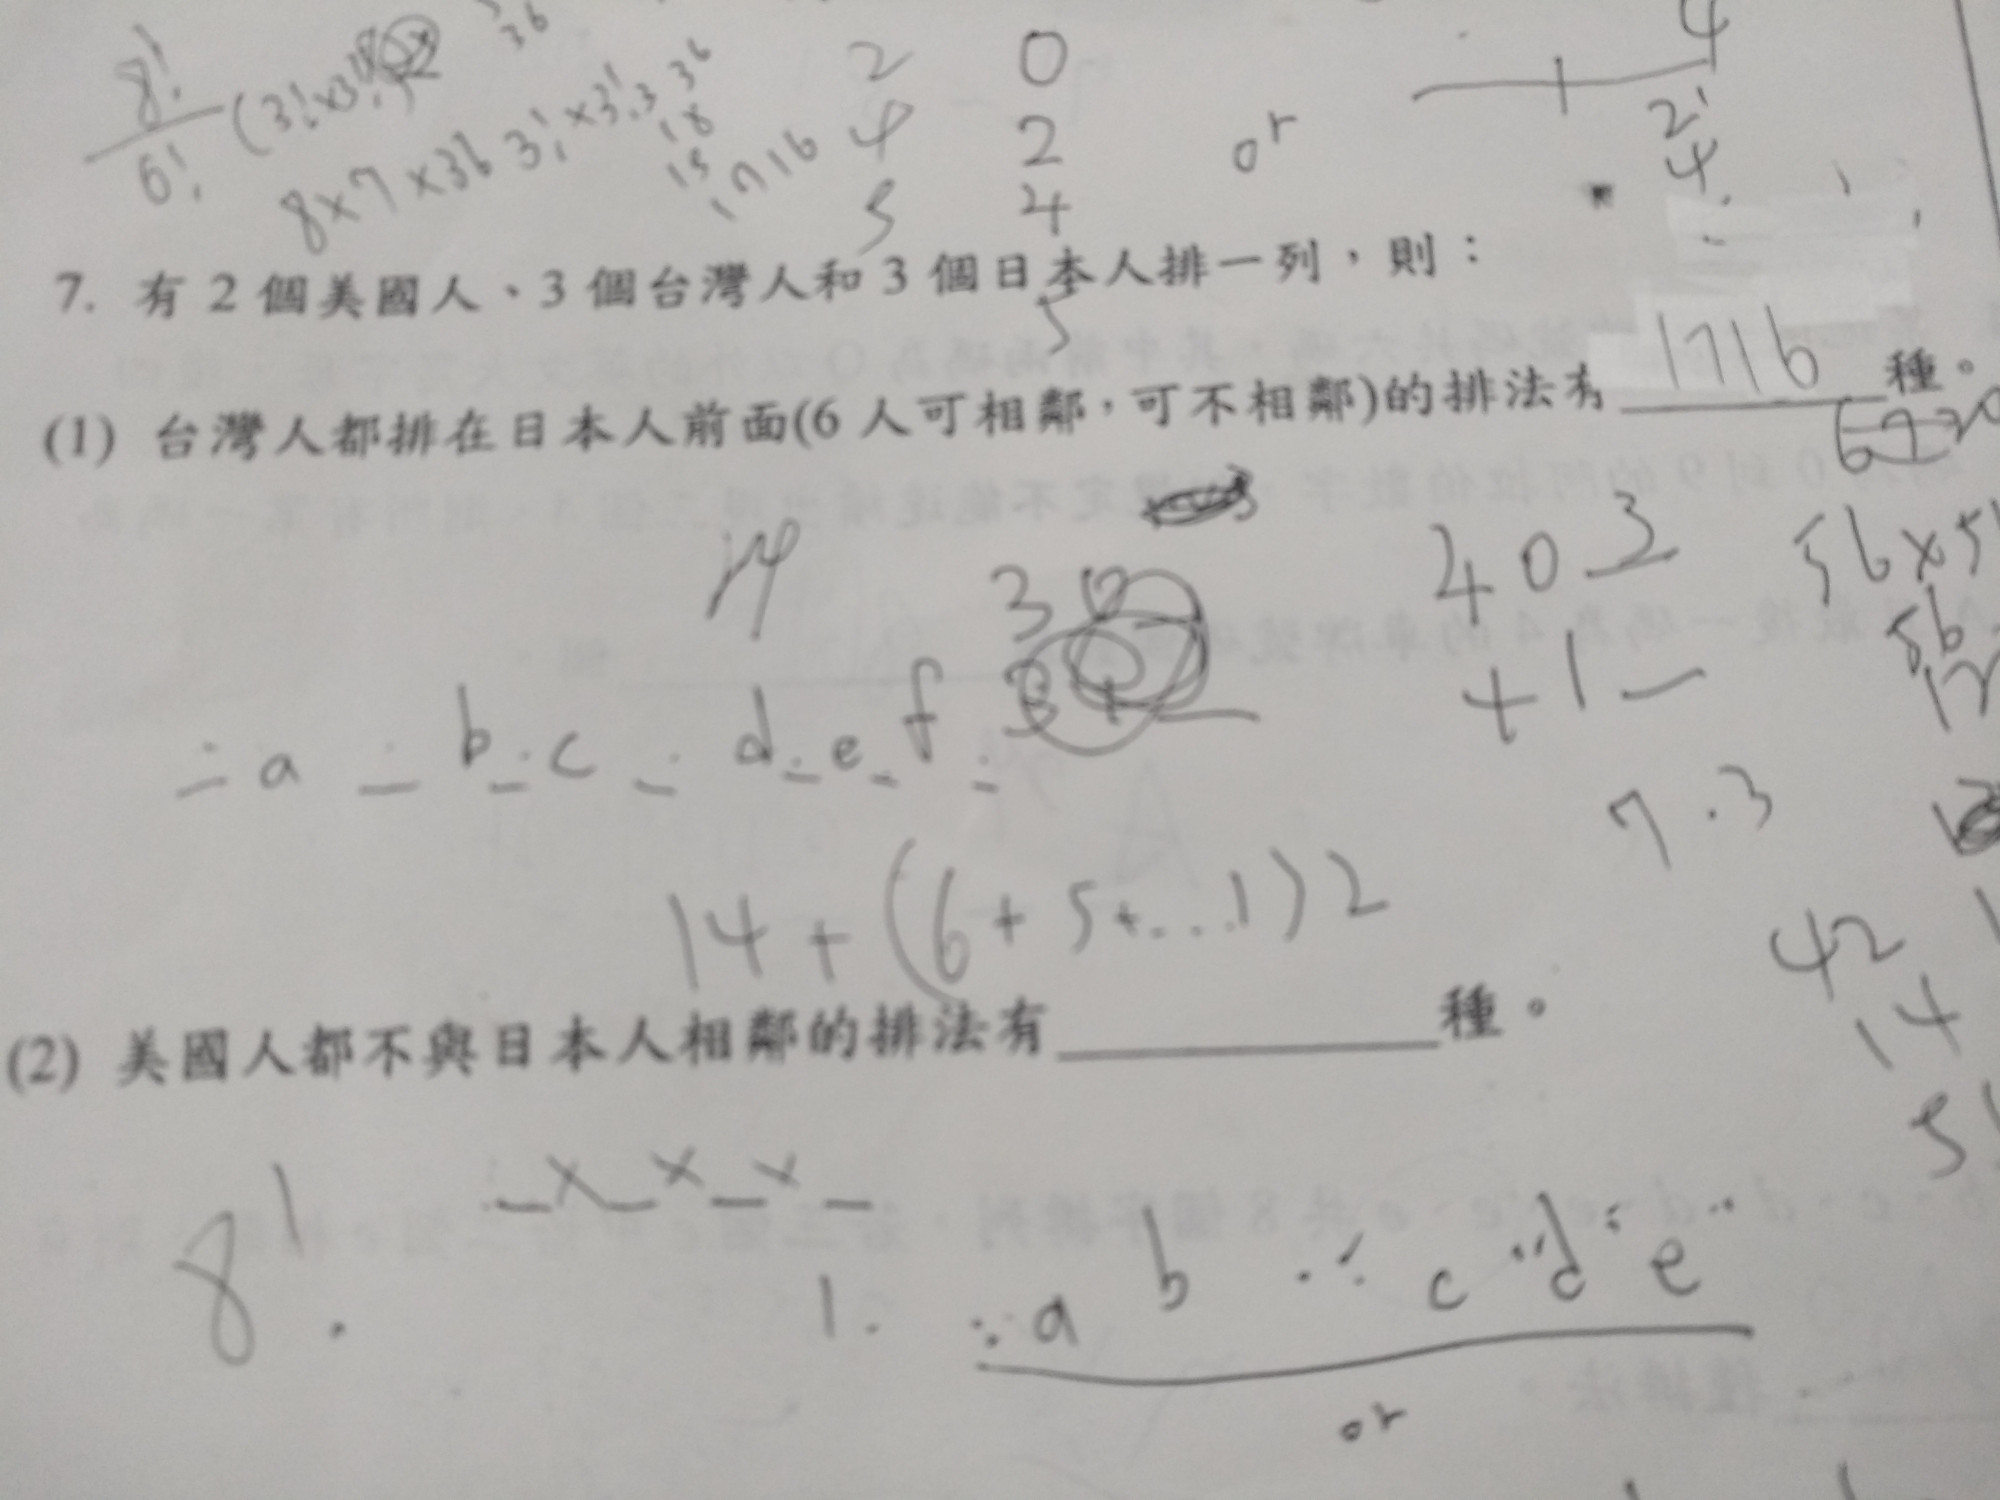 8!
6!
(3!×3!
36
8×7×36 3!×3!
3 36
18
15
1716
2 0
4 2
5 4
5
or
4
2
4
7. 有 2 個美國人、3 個台灣人和 3 個日本人排一列，則：
(1) 台灣人都排在日本人前面(6 人可相鄰，可不相鄰)的排法有 1716 種。
6720
14
30
403
56×5
+1-
56
12
a b c d e f
7.3
14+(6+5+...1)2
42
14
(2) 美國人都不與日本人相鄰的排法有 種。
5!
8!
× × ×
1. a b c d e
or